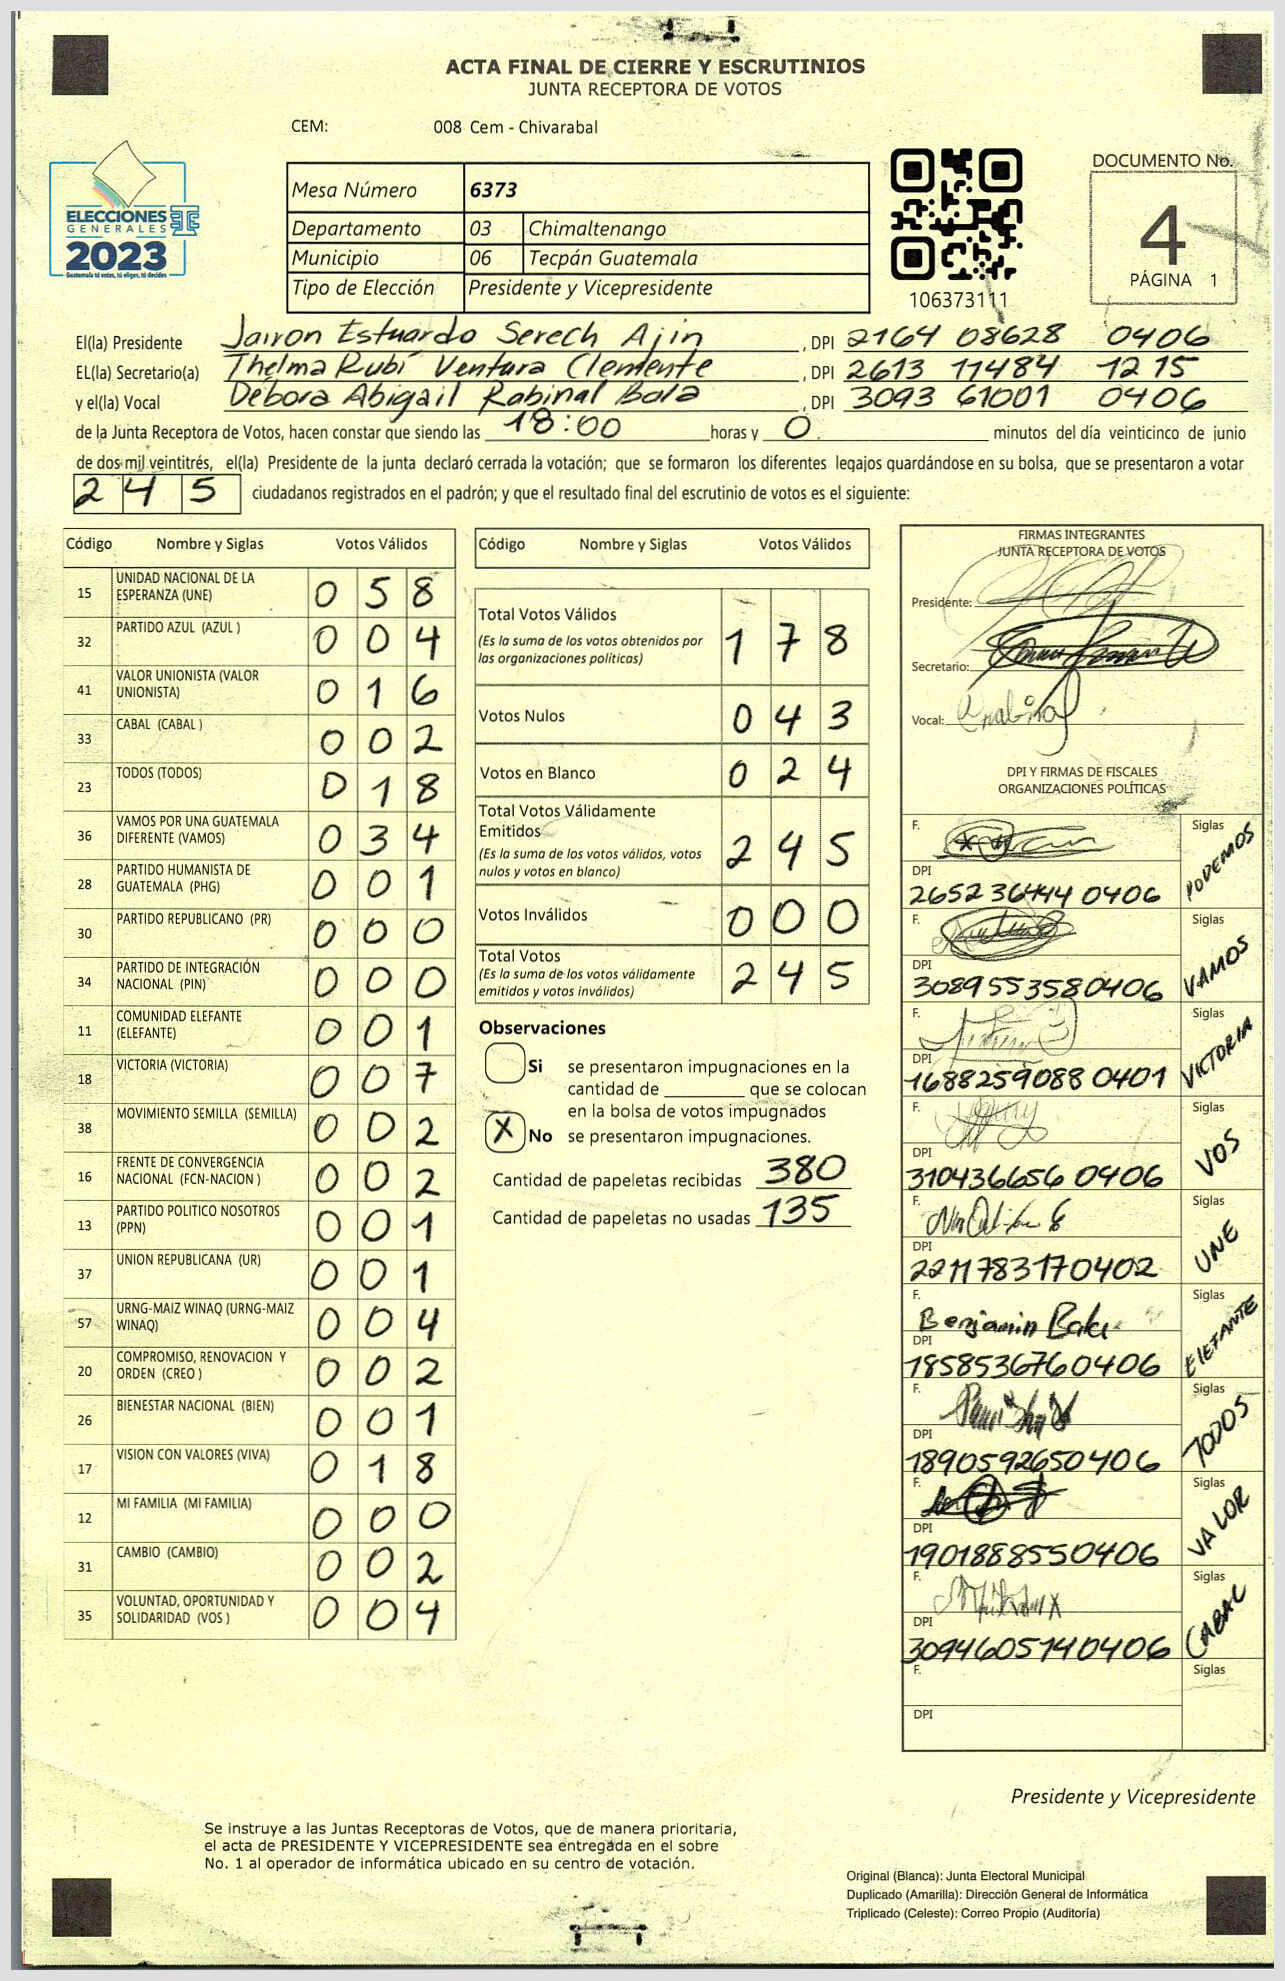 ACTA FINAL DE CIERRE Y ESCRUTINIOS
JUNTA RECEPTORA DE VOTOS
CEM: 008 Cem - Chivarabal
ELECCIONES
GENERALES
2023
Guatemala tú votas, tú eliges, tú decides
Mesa Número 6373
Departamento 03 Chimaltenango
Municipio 06 Tecpán Guatemala
Tipo de Elección Presidente y Vicepresidente
106373111
DOCUMENTO No.
4
PÁGINA 1
El(la) Presidente Jairon Estuardo Serech Ajin , DPI 2164 08628 0406
EL(la) Secretario(a) Thelma Rubí Ventura Clemente , DPI 2613 11484 1215
y el(la) Vocal Débora Abigail Rabinal Bala , DPI 3093 61001 0406
de la Junta Receptora de Votos, hacen constar que siendo las 18:00 horas y 0 minutos del día veinticinco de junio
de dos mil veintitrés, el(la) Presidente de la junta declaró cerrada la votación; que se formaron los diferentes legajos quardándose en su bolsa, que se presentaron a votar
2 4 5 ciudadanos registrados en el padrón; y que el resultado final del escrutinio de votos es el siguiente:
Código Nombre y Siglas Votos Válidos
15 UNIDAD NACIONAL DE LA ESPERANZA (UNE) 0 5 8
32 PARTIDO AZUL (AZUL ) 0 0 4
41 VALOR UNIONISTA (VALOR UNIONISTA) 0 1 6
33 CABAL (CABAL ) 0 0 2
23 TODOS (TODOS) 0 1 8
36 VAMOS POR UNA GUATEMALA DIFERENTE (VAMOS) 0 3 4
28 PARTIDO HUMANISTA DE GUATEMALA (PHG) 0 0 1
30 PARTIDO REPUBLICANO (PR) 0 0 0
34 PARTIDO DE INTEGRACIÓN NACIONAL (PIN) 0 0 0
11 COMUNIDAD ELEFANTE (ELEFANTE) 0 0 1
18 VICTORIA (VICTORIA) 0 0 7
38 MOVIMIENTO SEMILLA (SEMILLA) 0 0 2
16 FRENTE DE CONVERGENCIA NACIONAL (FCN-NACION ) 0 0 2
13 PARTIDO POLITICO NOSOTROS (PPN) 0 0 1
37 UNION REPUBLICANA (UR) 0 0 1
57 URNG-MAIZ WINAQ (URNG-MAIZ WINAQ) 0 0 4
20 COMPROMISO, RENOVACION Y ORDEN (CREO ) 0 0 2
26 BIENESTAR NACIONAL (BIEN) 0 0 1
17 VISION CON VALORES (VIVA) 0 1 8
12 MI FAMILIA (MI FAMILIA) 0 0 0
31 CAMBIO (CAMBIO) 0 0 2
35 VOLUNTAD, OPORTUNIDAD Y SOLIDARIDAD (VOS ) 0 0 4
Código Nombre y Siglas Votos Válidos
Total Votos Válidos 1 7 8
(Es la suma de los votos obtenidos por
las organizaciones políticas)
Votos Nulos 0 4 3
Votos en Blanco 0 2 4
Total Votos Válidamente
Emitidos 2 4 5
(Es la suma de los votos válidos, votos
nulos y votos en blanco)
Votos Inválidos 0 0 0
Total Votos 2 4 5
(Es la suma de los votos válidamente
emitidos y votos inválidos)
Observaciones
Si se presentaron impugnaciones en la
cantidad de ________ que se colocan
en la bolsa de votos impugnados
X No se presentaron impugnaciones.
Cantidad de papeletas recibidas 380
Cantidad de papeletas no usadas 135
FIRMAS INTEGRANTES
JUNTA RECEPTORA DE VOTOS
Presidente:
Secretario:
Vocal:
DPI Y FIRMAS DE FISCALES
ORGANIZACIONES POLÍTICAS
F. Siglas PODEMOS
DPI
2652364440406
F. Siglas VAMOS
DPI
3089553580406
F. Siglas VICTORIA
DPI
1688259088 0401
F. Siglas VOS
DPI
310436656 0406
F. Siglas UNE
DPI
2211783170402
F. Benjamin Siglas ELEFANTE
DPI
1858536760406
F. Siglas TODOS
DPI
1890592650406
F. Siglas VALOR
DPI
1901888550406
F. Siglas CABAL
DPI
3094605140406
F. Siglas
DPI
Presidente y Vicepresidente
Se instruye a las Juntas Receptoras de Votos, que de manera prioritaria,
el acta de PRESIDENTE Y VICEPRESIDENTE sea entregada en el sobre
No. 1 al operador de informática ubicado en su centro de votación.
Original (Blanca): Junta Electoral Municipal
Duplicado (Amarilla): Dirección General de Informática
Triplicado (Celeste): Correo Propio (Auditoría)